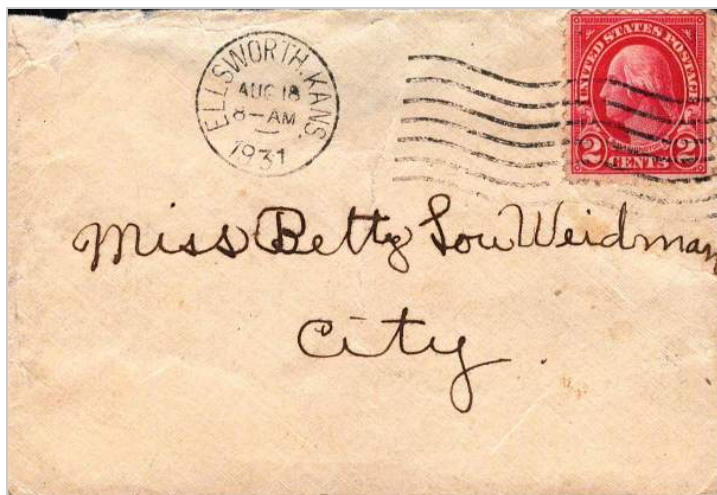 ELLSWORTH, KANS.
AUG 18
8-AM
1931
UNITED STATES POSTAGE
WASHINGTON
2 CENTS 2
Miss Betty Lou Weidman
City.